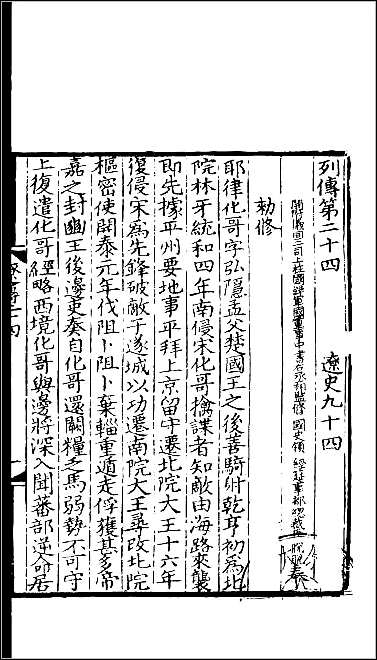 列傳第二十四　遼史九十四
開府儀同三司上柱國錄軍國重事中書右丞相監修國史領經筵事都總裁臣脫脫奉
勑修
耶律化哥字弘隱孟父楚國王之後善騎射乾亨初為北
院林牙統和四年南侵宋化哥擒諜者知敵由海路來襲
即先據平州要地事平拜上京留守遷北院大王十六年
復侵宋為先鋒破敵于遂城以功遷南院大王尋改北院
樞密使開泰元年伐阻卜阻卜棄輜重遁走俘獲甚多帝
嘉之封豳王後邊吏奏自化哥還闕糧乏馬弱勢不可守
上復遣化哥經略西境化哥與邊將深入聞蕃部逆命居